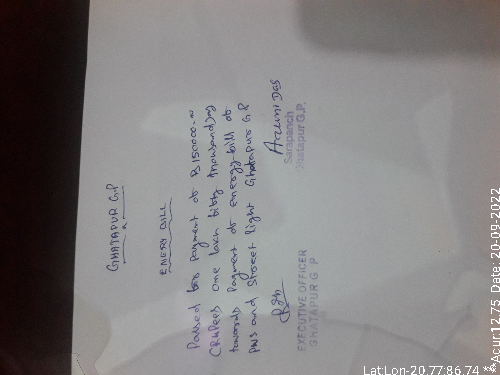 GHATAPUR G.P
ENERY BILL
Passed for payment of Rs 150000-00
(Rupees one lakh fifty thousand) only
towards Payment of energy-bill of
PWS and Street light Ghatapur G.P
EXECUTIVE OFFICER
GHATAPUR G P
Arumi DAS
Sarapanch
Ghatapur G.P.
LatLon-20.77:86.74
**Acur:12.75 Date: 20-09-2022